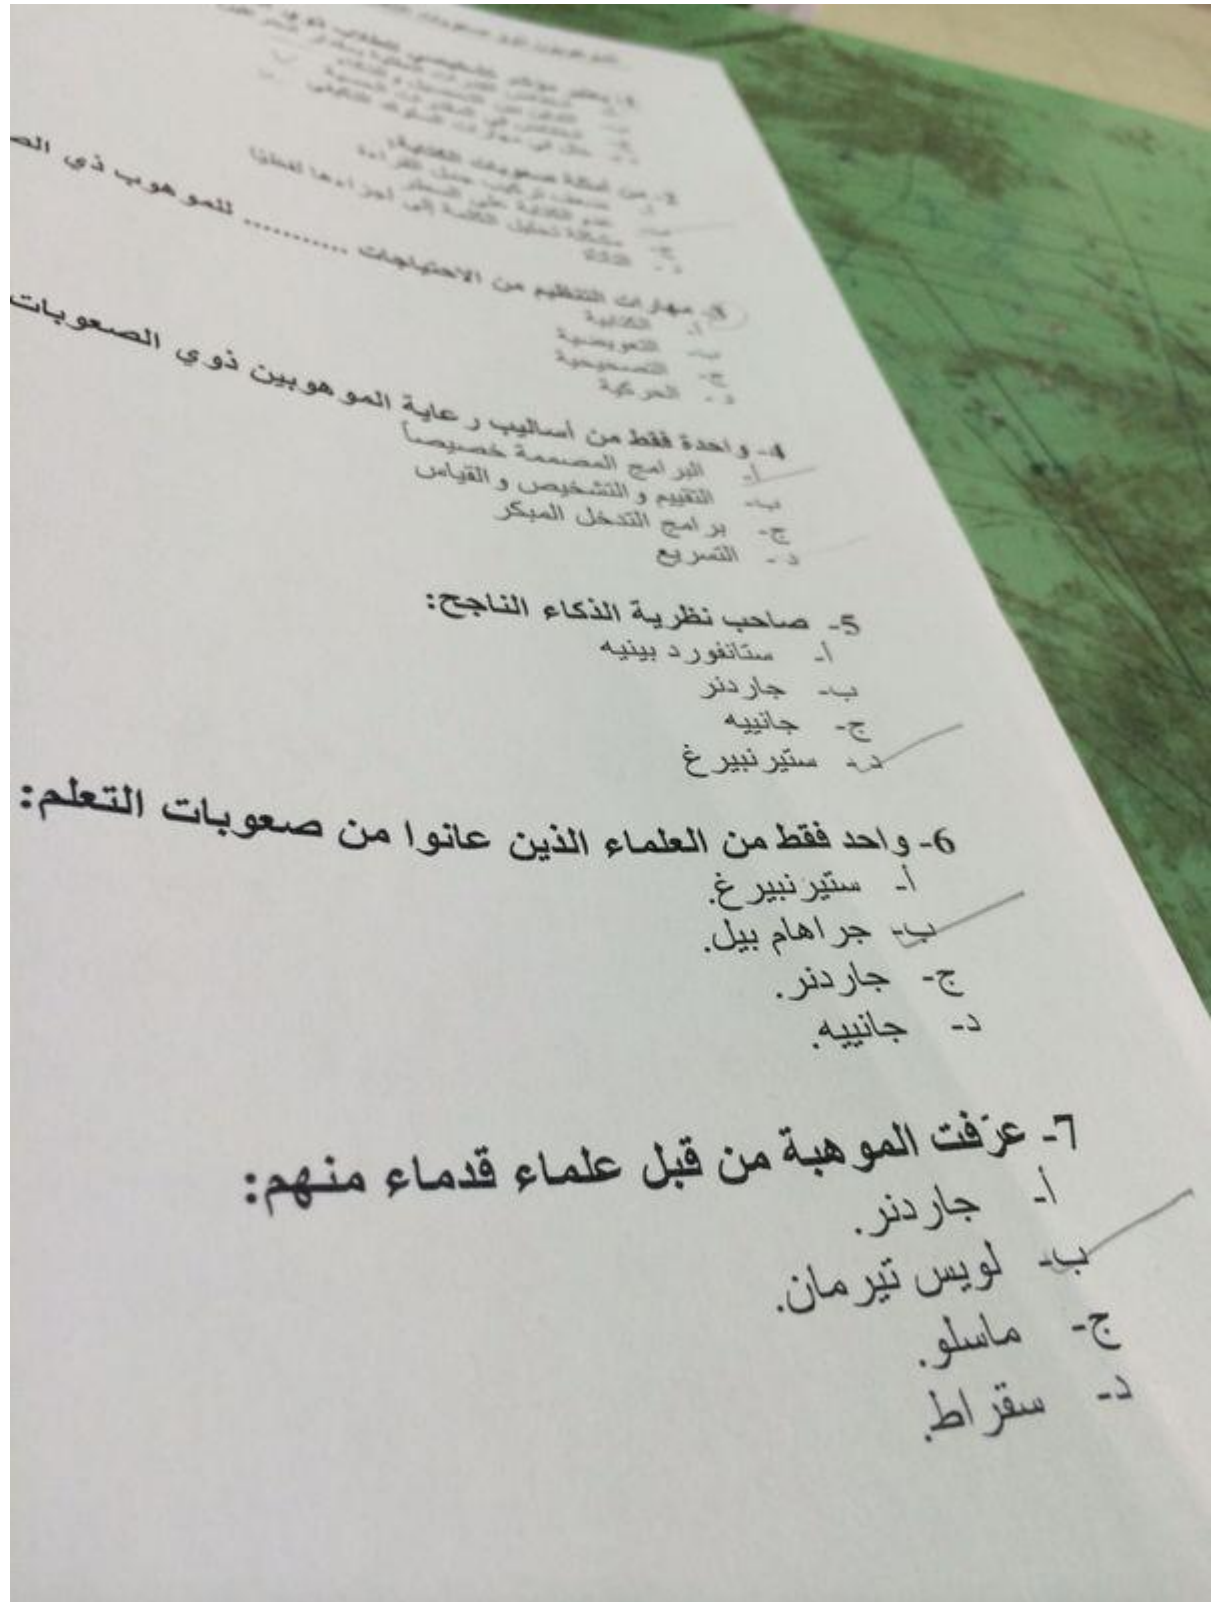 2- من أمثلة صعوبات الكتابة:
أ- ضعف تركيب جمل القراءة
ب- عدم الكتابة على السطر
ج- مشكلة تحليل الكلمة إلى أجزاءها لفظيًا
د-
3- مهارات التنظيم من الاحتياجات ........... للموهوب ذي
أ- الكتابية
ب- التعويضية
ج- التصحيحية
د- الحركية
4- واحدة فقط من أساليب رعاية الموهوبين ذوي الصعوبات
أ- البرامج المصممة خصيصاً
ب- التقييم والتشخيص والقياس
ج- برامج التدخل المبكر
د- التسريع
5- صاحب نظرية الذكاء الناجح:
أ- ستانفورد بينيه
ب- جاردنر
ج- جانييه
د- ستيرنبيرغ
6- واحد فقط من العلماء الذين عانوا من صعوبات التعلم:
أ- ستيرنبيرغ.
ب- جراهام بيل.
ج- جاردنر.
د- جانييه.
7- عرّفت الموهبة من قبل علماء قدماء منهم:
أ- جاردنر.
ب- لويس تيرمان.
ج- ماسلو.
د- سقراط.